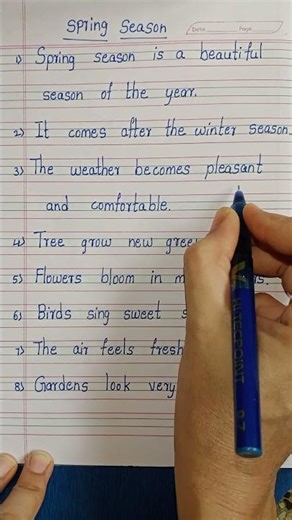 Spring Season
Date Page
1) Spring season is a beautiful
season of the year.
2) It comes after the winter season.
3) The weather becomes pleasant
and comfortable.
4) Tree grow new
5) Flowers bloom in
6) Birds sing sweet
7) The air feels fresh
8) Gardens look very